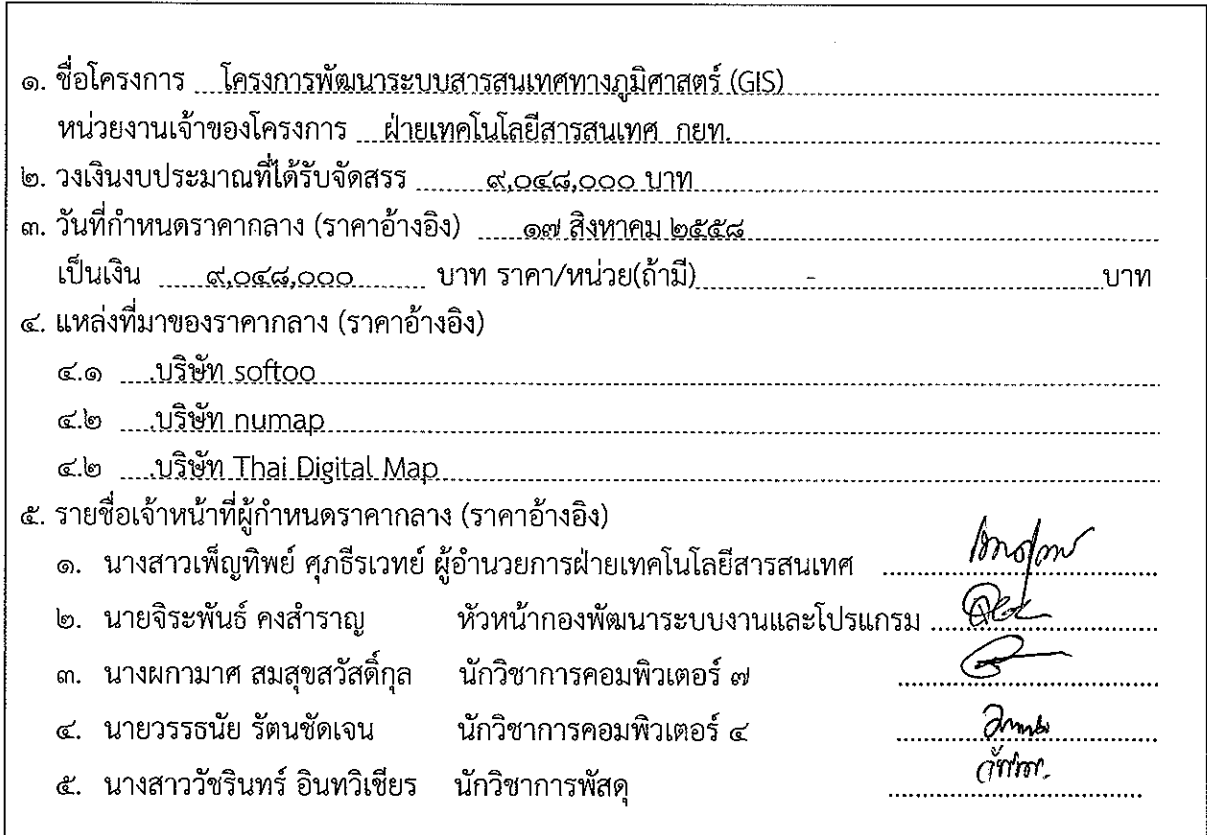 ๑. ชื่อโครงการ โครงการพัฒนาระบบสารสนเทศทางภูมิศาสตร์ (GIS)
หน่วยงานเจ้าของโครงการ ฝ่ายเทคโนโลยีสารสนเทศ กยท.
๒. วงเงินงบประมาณที่ได้รับจัดสรร ๙,๐๔๘,๐๐๐ บาท
๓. วันที่กำหนดราคากลาง (ราคาอ้างอิง) ๑๗ สิงหาคม ๒๕๕๘
เป็นเงิน ๙,๐๔๘,๐๐๐ บาท ราคา/หน่วย(ถ้ามี) - บาท
๔. แหล่งที่มาของราคากลาง (ราคาอ้างอิง)
๔.๑ บริษัท softoo
๔.๒ บริษัท numap
๔.๒ บริษัท Thai Digital Map
๕. รายชื่อเจ้าหน้าที่ผู้กำหนดราคากลาง (ราคาอ้างอิง)
๑. นางสาวเพ็ญทิพย์ ศุภธีรเวทย์ ผู้อำนวยการฝ่ายเทคโนโลยีสารสนเทศ
๒. นายจิระพันธ์ คงสำราญ หัวหน้ากองพัฒนาระบบงานและโปรแกรม
๓. นางผกามาศ สมสุขสวัสดิ์กุล นักวิชาการคอมพิวเตอร์ ๗
๔. นายวรรธนัย รัตนชัดเจน นักวิชาการคอมพิวเตอร์ ๔
๕. นางสาววัชรินทร์ อินทวิเชียร นักวิชาการพัสดุ